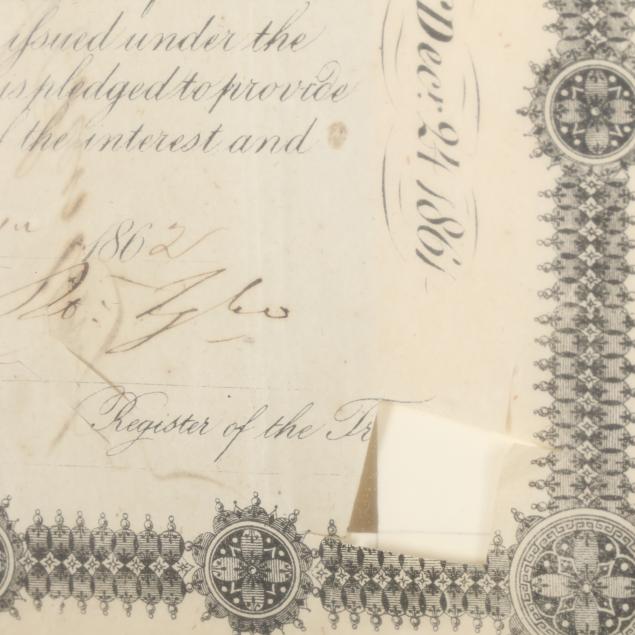 issued under the
is pledged to provide
the interest and
1862
Register of the Tr
Decr. 24 1861